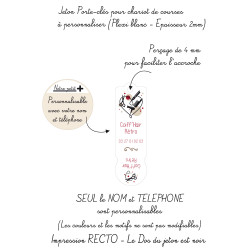 Jeton Porte-clés pour chariot de courses
à personnaliser (Plexi blanc - Epaisseur 2mm)
Perçage de 4 mm
pour faciliter l'accroche
Notre petit +
Personnalisable
avec votre nom
et téléphone
Coiff'Hair
Rétro
Coiff'Hair
Rétro
SEUL le NOM et TELEPHONE
sont personnalisables
(Les couleurs et les motifs ne sont pas modifiables)
Impression RECTO - Le Dos du jeton est noir